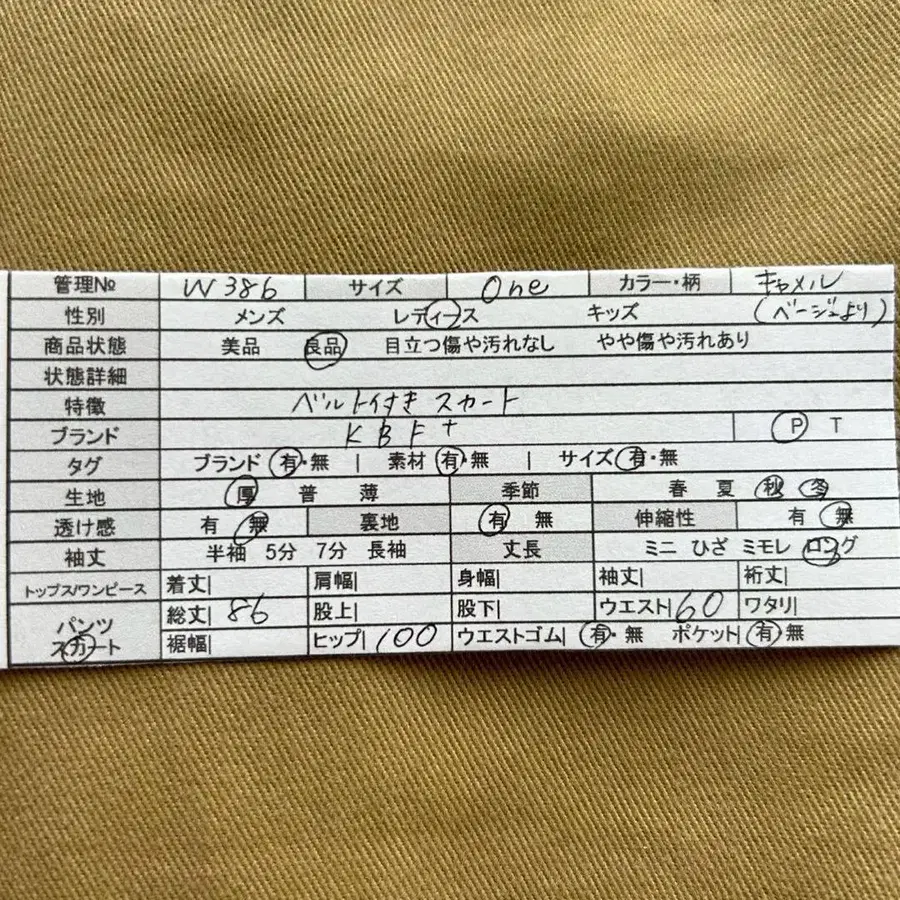 管理№ W386 サイズ One カラー・柄 キャメル
性別 メンズ レディース キッズ (ベージュより)
商品状態 美品 良品 目立つ傷や汚れなし やや傷や汚れあり
状態詳細
特徴 ベルト付き スカート
ブランド KBF+ P T
タグ ブランド 有・無 | 素材 有・無 | サイズ 有・無
生地 厚 普 薄 季節 春 夏 秋 冬
透け感 有 無 裏地 有 無 伸縮性 有 無
袖丈 半袖 5分 7分 長袖 丈長 ミニ ひざ ミモレ ロング
トップス/ワンピース 着丈| 肩幅| 身幅| 袖丈| 裄丈|
パンツ 総丈|86 股上| 股下| ウエスト|60 ワタリ|
スカート 裾幅| ヒップ|100 ウエストゴム| 有・無 ポケット| 有・無